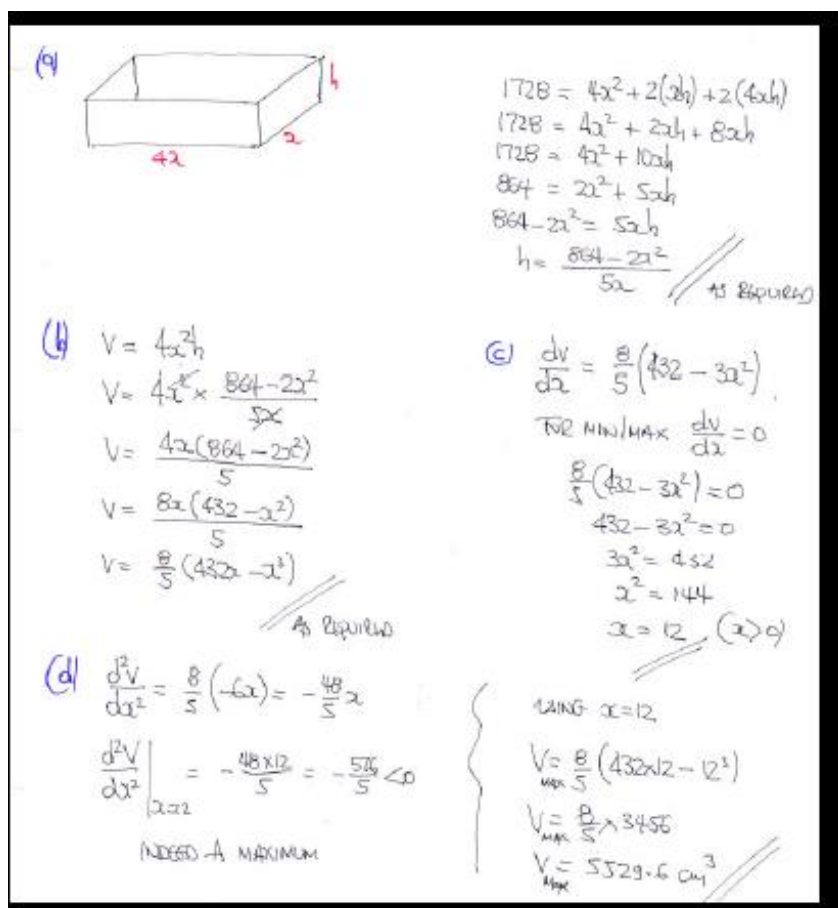 (a)
h
x
4x
1728 = 4x² + 2(xh) + 2(4xh)
1728 = 4x² + 2xh + 8xh
1728 = 4x² + 10xh
864 = 2x² + 5xh
864 - 2x² = 5xh
h = \frac{864 - 2x²}{5x}
AS REQUIRED
(b)
V = 4x²h
V = 4x² × \frac{864 - 2x²}{5x}
V = \frac{4x(864 - 2x²)}{5}
V = \frac{8x(432 - x²)}{5}
V = \frac{8}{5}(432x - x³)
AS REQUIRED
(c) \frac{dV}{dx} = \frac{8}{5}(432 - 3x²)
FOR MIN/MAX \frac{dV}{dx} = 0
\frac{8}{5}(432 - 3x²) = 0
432 - 3x² = 0
3x² = 432
x² = 144
x = 12 (x>0)
(d) \frac{d²V}{dx²} = \frac{8}{5}(-6x) = -\frac{48}{5}x
\frac{d²V}{dx²}|_{x=12} = -\frac{48×12}{5} = -\frac{576}{5} < 0
INDEED A MAXIMUM
USING x=12
V_{MAX} = \frac{8}{5}(432×12 - 12³)
V_{MAX} = \frac{8}{5} × 3456
V_{MAX} = 5529.6 cm³